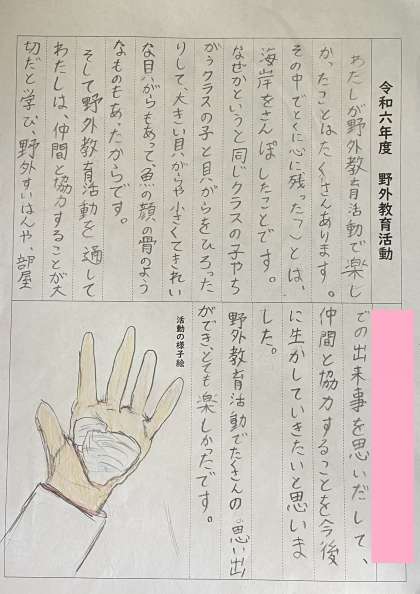 令和六年度　野外教育活動
わたしが野外教育活動で楽し
か、たことは、たくさんあります。
その中でとくに心に残ったことは、
海岸をさんぽしたことです。
なぜかというと同じクラスの子やち
がうクラスの子と貝がらをひろった
りして、大きい貝がらや小さくてきれい
な貝がらもあって、魚の顔の骨のよう
なものもあ、たからです。
そして野外教育活動を通して
わたしは、仲間と協力することが大
切だと学び、野外すいはんや、部屋
での出来事を思いだして、
仲間と協力することを今後
に生かしていきたいと思いま
した。
野外教育活動でたくさんの思い出
ができ、とても楽しかったです。
活動の様子絵